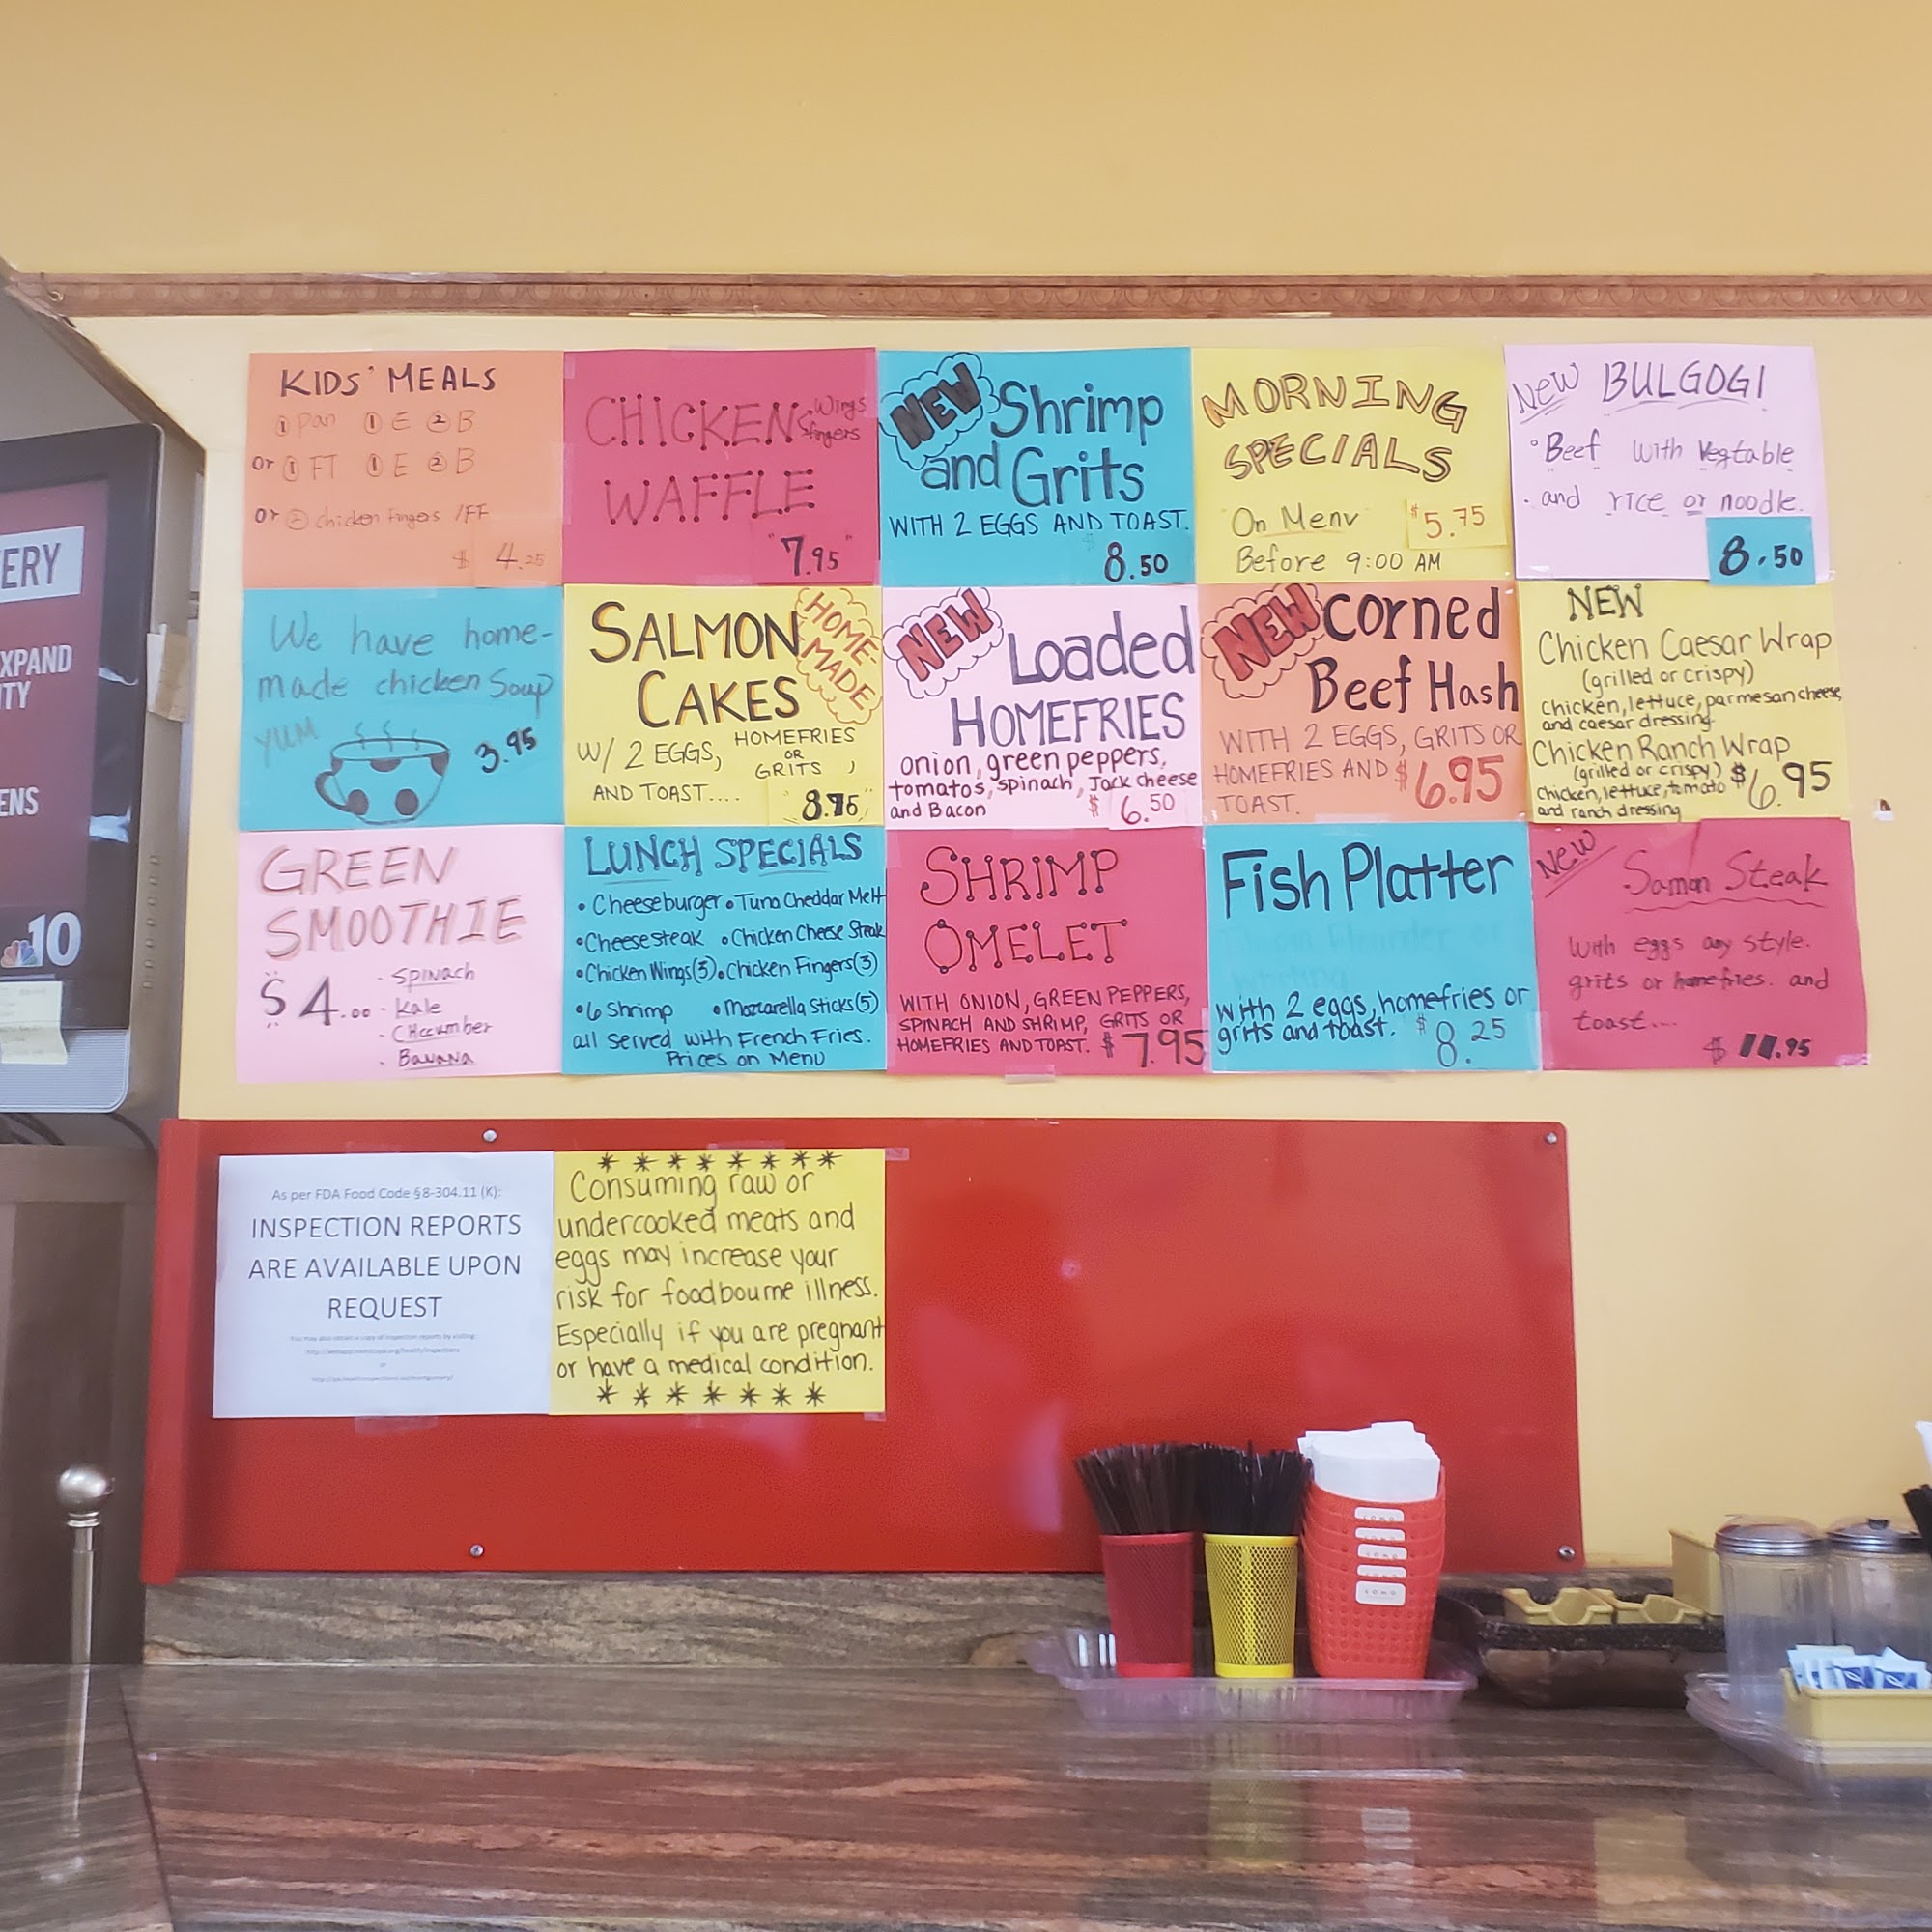 KIDS' MEALS
① Pan ① E ② B
or ① FT ① E ② B
or ② chicken fingers /FF
$ 4.25
CHICKEN Wings
fingers
WAFFLE
"7.95"
NEW Shrimp
and Grits
WITH 2 EGGS AND TOAST.
8.50
MORNING
SPECIALS
On Menu $5.75
Before 9:00 AM
New BULGOGI
• Beef with Vegtable
• and rice or noodle.
8.50
We have home-
made chicken Soup
YUM
3.95
SALMON HOME-
CAKES MADE
W/ 2 EGGS, HOMEFRIES
OR
GRITS ,
AND TOAST....
NEW
Loaded
HOMEFRIES
onion, green peppers,
tomatos, spinach, Jack cheese
and Bacon $ 6.50
NEW corned
Beef Hash
WITH 2 EGGS, GRITS OR
HOMEFRIES AND $6.95
TOAST.
NEW
Chicken Caesar Wrap
(grilled or crispy)
Chicken, lettuce, parmesan cheese,
and caesar dressing.
Chicken Ranch Wrap
(grilled or crispy) $6.95
Chicken, lettuce, tomato
and ranch dressing
GREEN
SMOOTHIE
$4.00
- SPINACH
- Kale
- CHccumber
- Banana
LUNCH SPECIALS
• Cheeseburger • Tuna Cheddar Melt
• Cheesesteak • Chicken Cheese Steak
• Chicken Wings(3) • Chicken Fingers(3)
• 6 Shrimp • Mozarella Sticks(5)
all served with French Fries.
Prices on Menu
SHRIMP
OMELET
WITH ONION, GREEN PEPPERS,
SPINACH AND SHRIMP, GRITS OR
HOMEFRIES AND TOAST. $7.95
Fish Platter
with 2 eggs, homefries or
grits and toast. $8.25
New
Samon Steak
with eggs any style.
grits or homefries. and
toast...
$ 11.95
ERY
XPAND
ITY
ENS
10
As per FDA Food Code §8-304.11 (K):
INSPECTION REPORTS
ARE AVAILABLE UPON
REQUEST
You may also obtain a copy of inspection reports by visiting:
or
* * * * * * * *
Consuming raw or
undercooked meats and
eggs may increase your
risk for foodbourne illness.
Especially if you are pregnant
or have a medical condition.
* * * * * * *